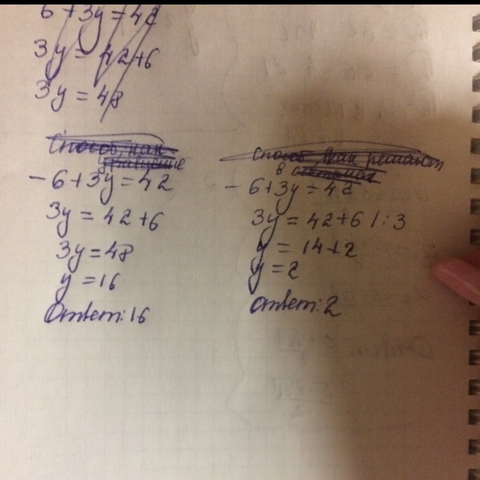 6 + 3y = 42
3y = 42+6
3y = 48
Способ, как
уравнение
- 6 + 3y = 42
3y = 42 + 6
3y = 48
y = 16
Ответ: 16
Способ, как решают
в
- 6 + 3y = 42
3y = 42 + 6 /: 3
y = 14 + 2
y = 2
Ответ: 2